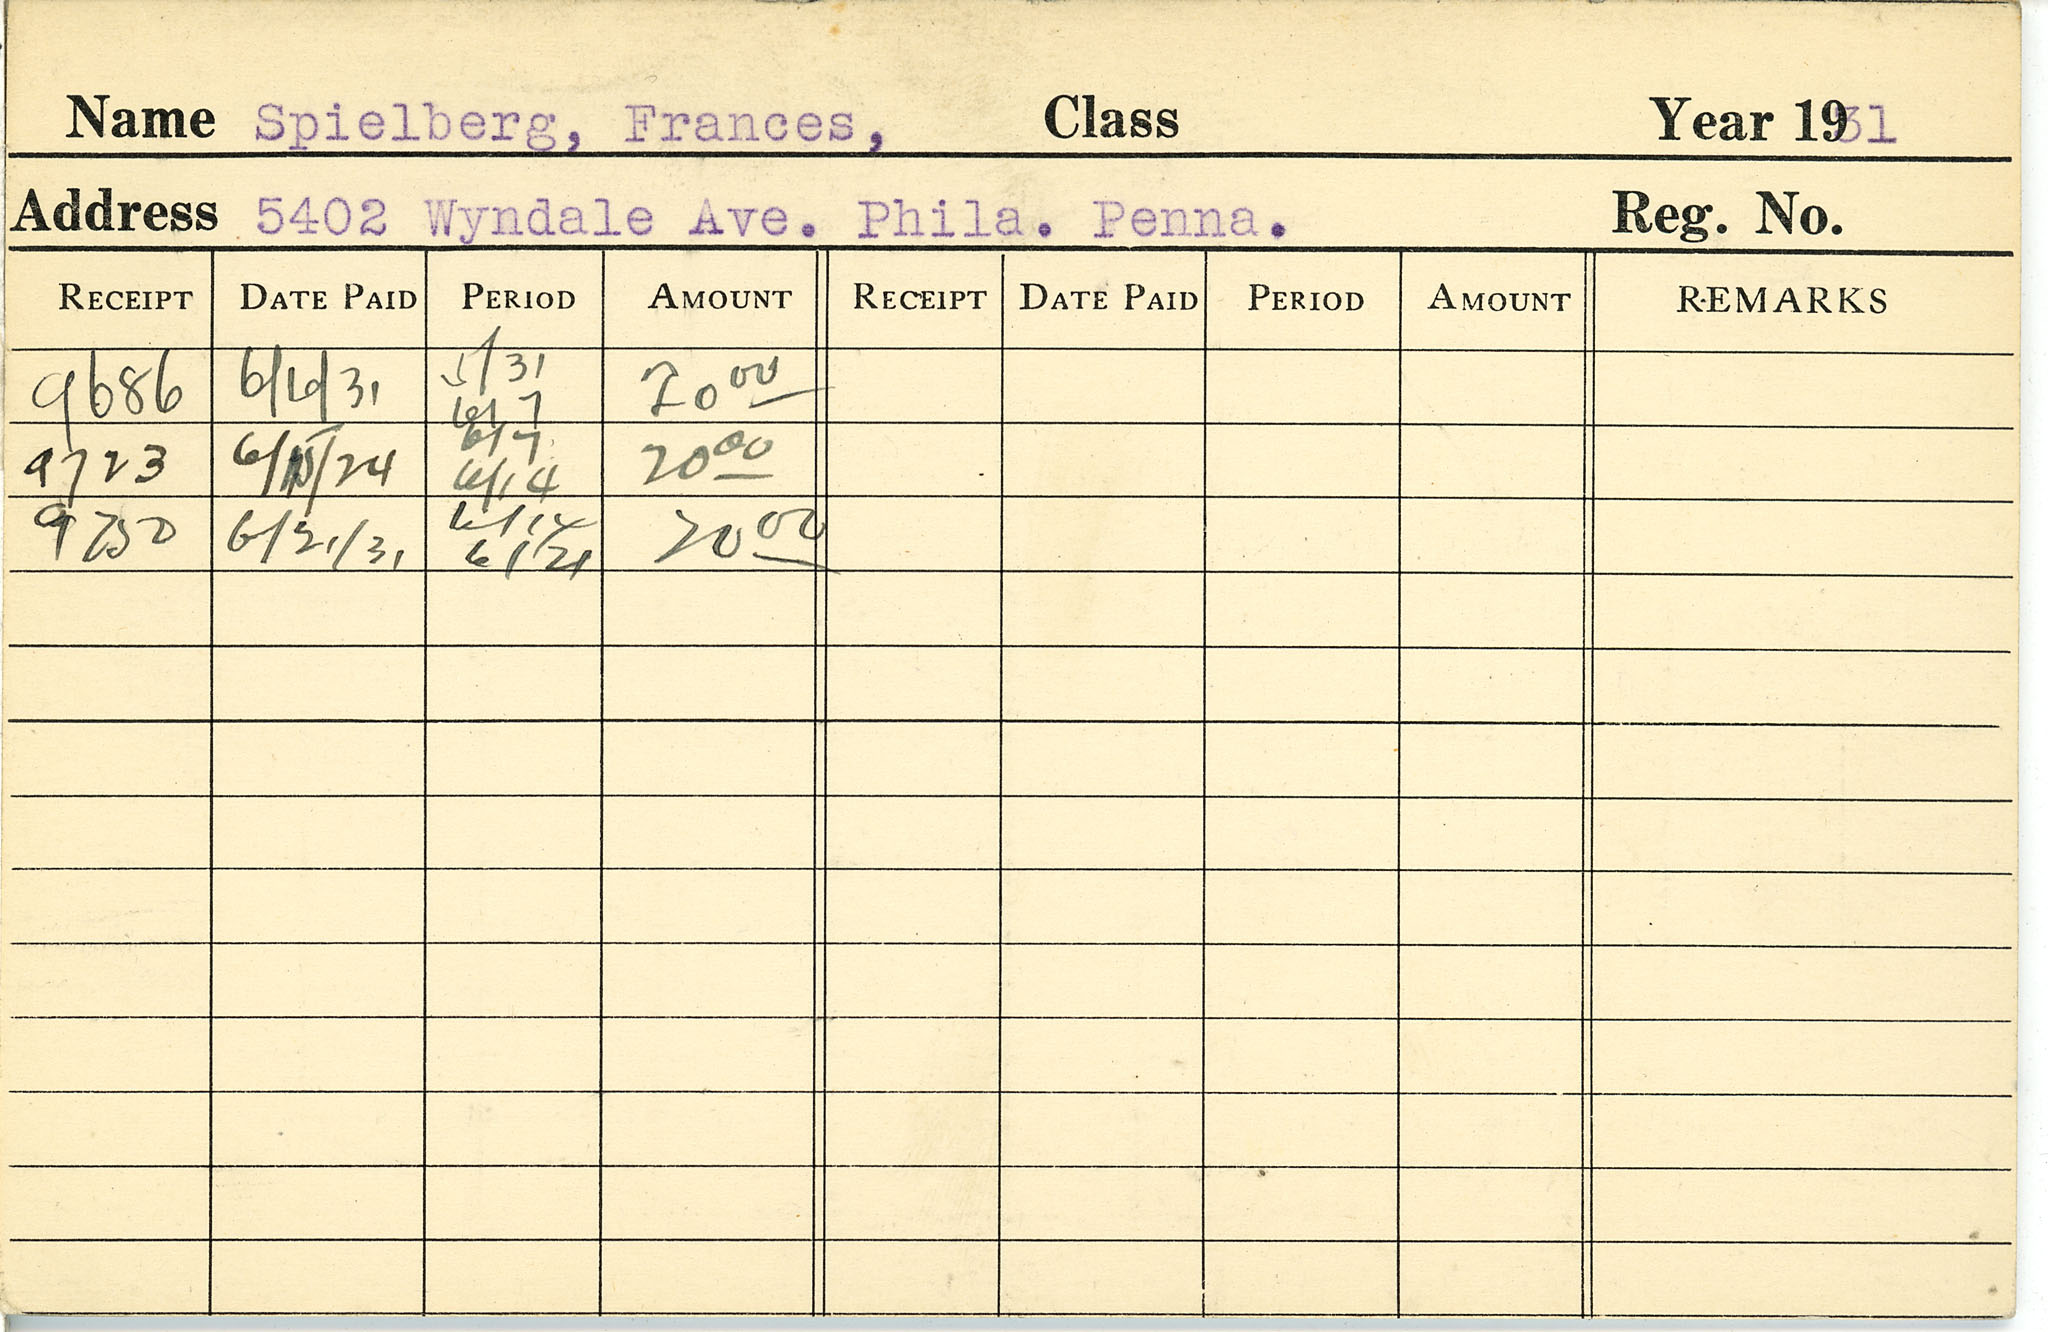 Name Spielberg, Frances, Class Year 1931
Address 5402 Wyndale Ave. Phila. Penna. Reg. No.
RECEIPT DATE PAID PERIOD AMOUNT RECEIPT DATE PAID PERIOD AMOUNT REMARKS
9686 6/6/31 5/31 20 00
6/7
9723 6/15/24 6/7 20 00
6/14
9750 6/21/31 6/14 20 00
6/21